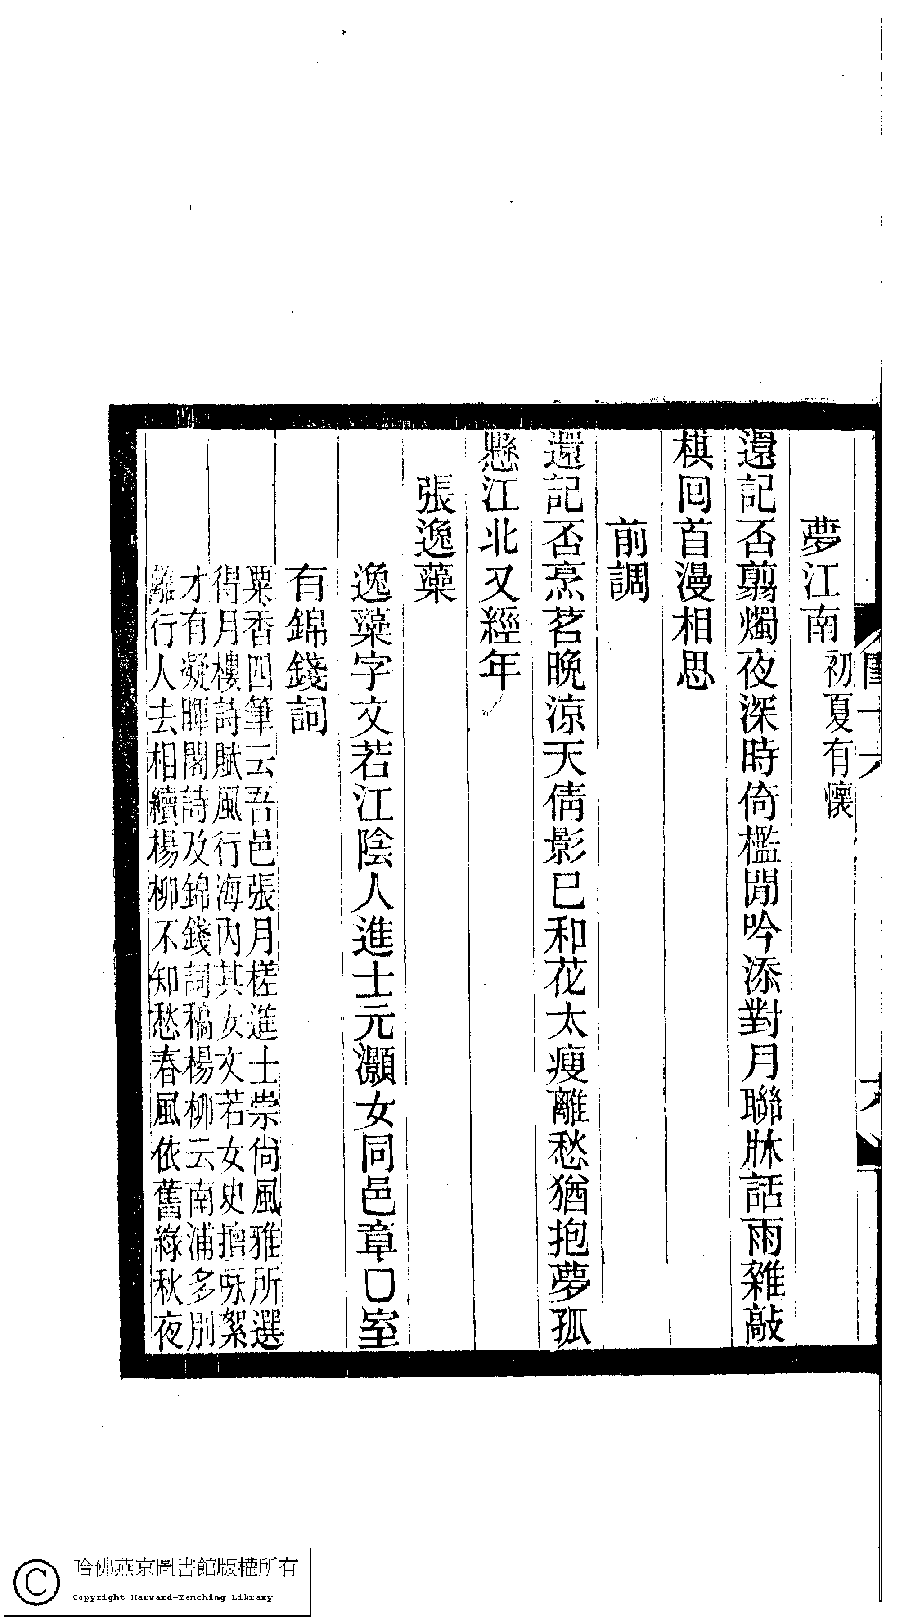 夢江南初夏有懷
還記否翦燭夜深時倚檻閒吟添對月聯牀話雨雜敲
棋回首漫相思
前調
還記否烹茗晚涼天倩影已和花太瘦離愁猶抱夢孤
懸江北又經年
張逸藻
逸藻字文若江陰人進士元灝女同邑章口室
有錦錢詞
粟香四筆云吾邑張月槎進士崇尙風雅所選
得月樓詩賦風行海內其女文若女史擅咏絮
才有凝暉閣詩及錦錢詞稿楊柳云南浦多別
離行人去相續楊柳不知愁春風依舊綠秋夜
哈佛燕京圖書館版權所有
Copyright Harvard-Yenching Library